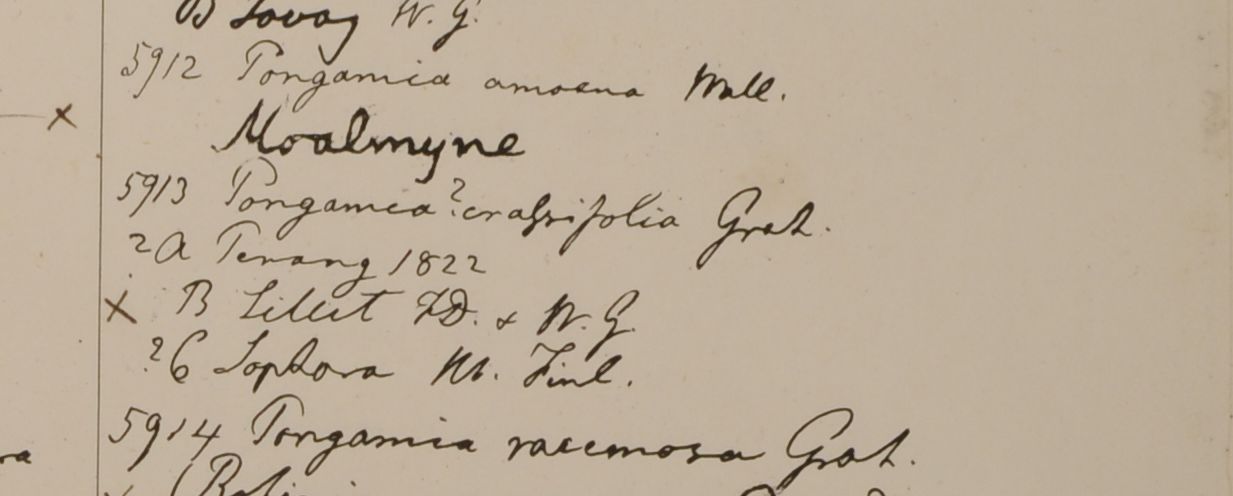 B Tavoy W. G.
5912 Pongamia amoena Wall.
Moalmyne
5913 Pongamia ? crassifolia Grah.
? A Penang 1822
× B Sillet FD. & W. G.
? C Sophora Hb. Finl.
5914 Pongamia racemosa Grah.
ra